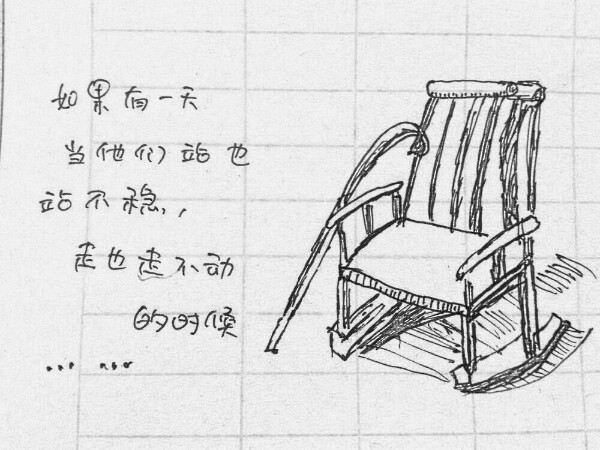 如果有一天
当他们站也
站不稳，
走也走不动
的时候
... ...